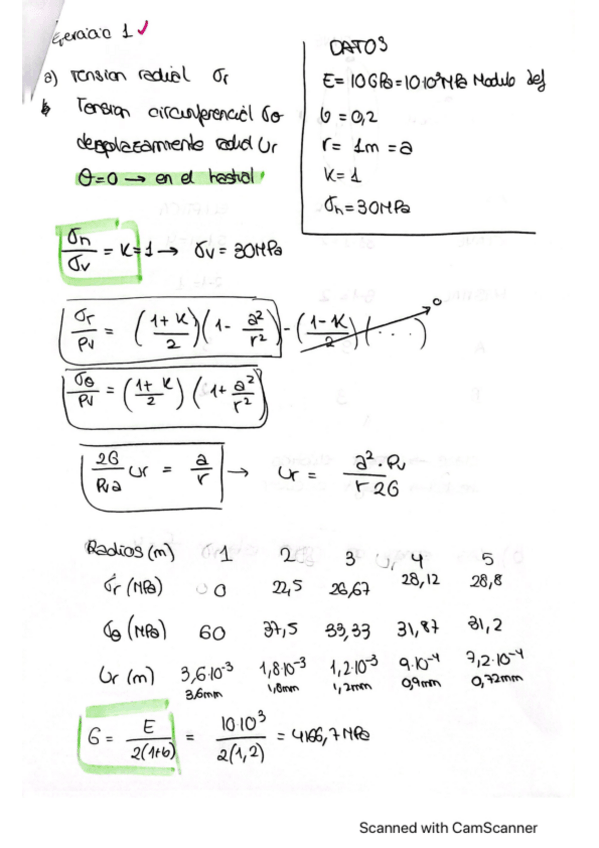 Ejercicio 1 ✓
a) Tension radial σr
b Tension circunferencial σθ
desplazamiento radial Ur
θ=0 → en el hastial
DATOS
E= 10GPa=10·10³MPa Modulo def
ν = 0,2
r= 1m = a
K= 1
σh = 30MPa
σh/σv = K=1 → σv = 30MPa
σr/Pv = ((1+K)/2)(1- a²/r²) - ((1-K)/2)(...) 0
σθ/Pv = ((1+K)/2)(1+ a²/r²)
2G/(Pv a) Ur = a/r → Ur = a²·Pv/(r 2G)
Radios (m) 1 2 3 4 5
σr (MPa) 0 22,5 26,67 28,12 28,8
σθ (MPa) 60 37,5 33,33 31,87 31,2
Ur (m) 3,6·10⁻³ 1,8·10⁻³ 1,2·10⁻³ 9·10⁻⁴ 7,2·10⁻⁴
3,6mm 1,8mm 1,2mm 0,9mm 0,72mm
G = E/(2(1+ν)) = 10·10³/(2(1,2)) = 4166,7 MPa
Scanned with CamScanner